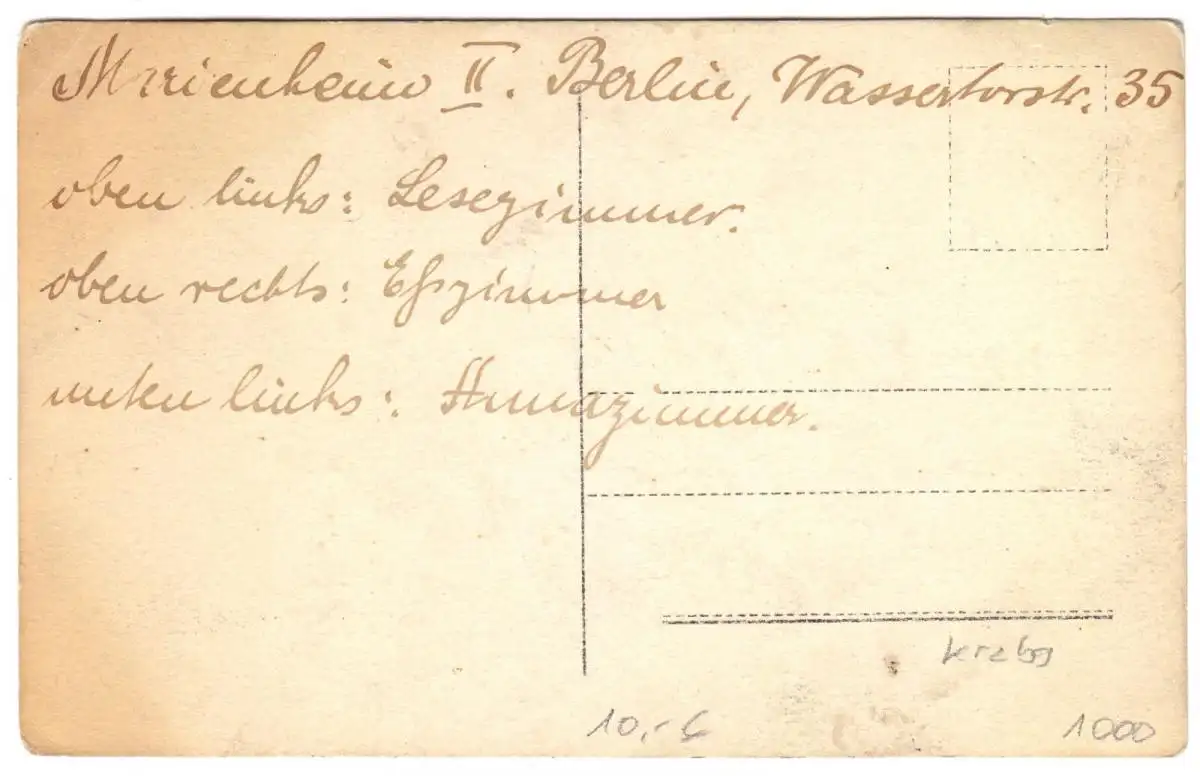 Marienheim II. Berlin, Wassertorstr. 35
oben links: Lesezimmer.
oben rechts: Eßzimmer
unten links: Annazimmer.
krzbg
10,- €
1000